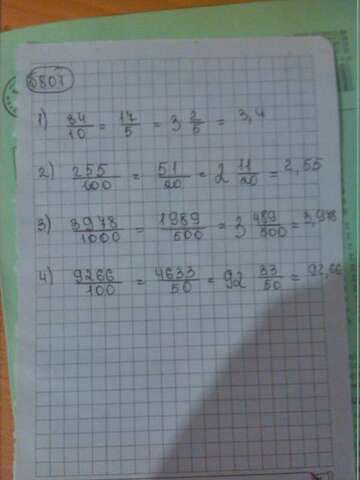 801
1) 34/10 = 17/5 = 3 2/5 = 3,4
2) 255/100 = 51/20 = 2 11/20 = 2,55
3) 3978/1000 = 1989/500 = 3 489/500 = 3,978
4) 9266/100 = 4633/50 = 92 33/50 = 92,66